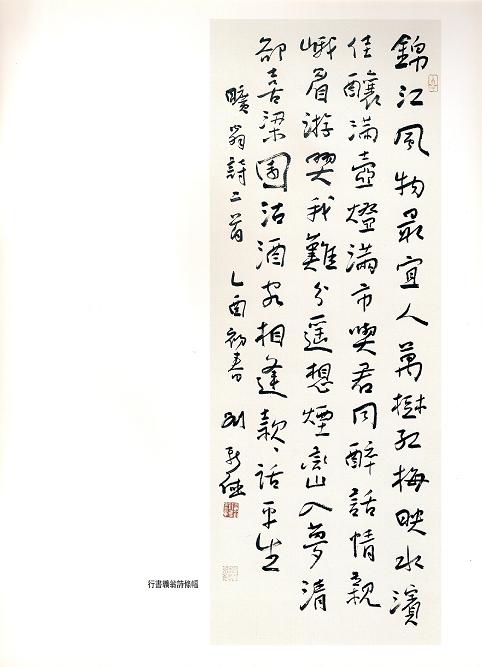 錦江風物最宜人萬樹紅梅映水濱
佳釀滿壺燈滿市與君同醉話情親
峨眉游興我難分遥想煙嵐入夢清
卻喜梁園沽酒客相逢款〻話平生
曠翁詩二首 乙酉初春 劉新德
行書曠翁詩條幅